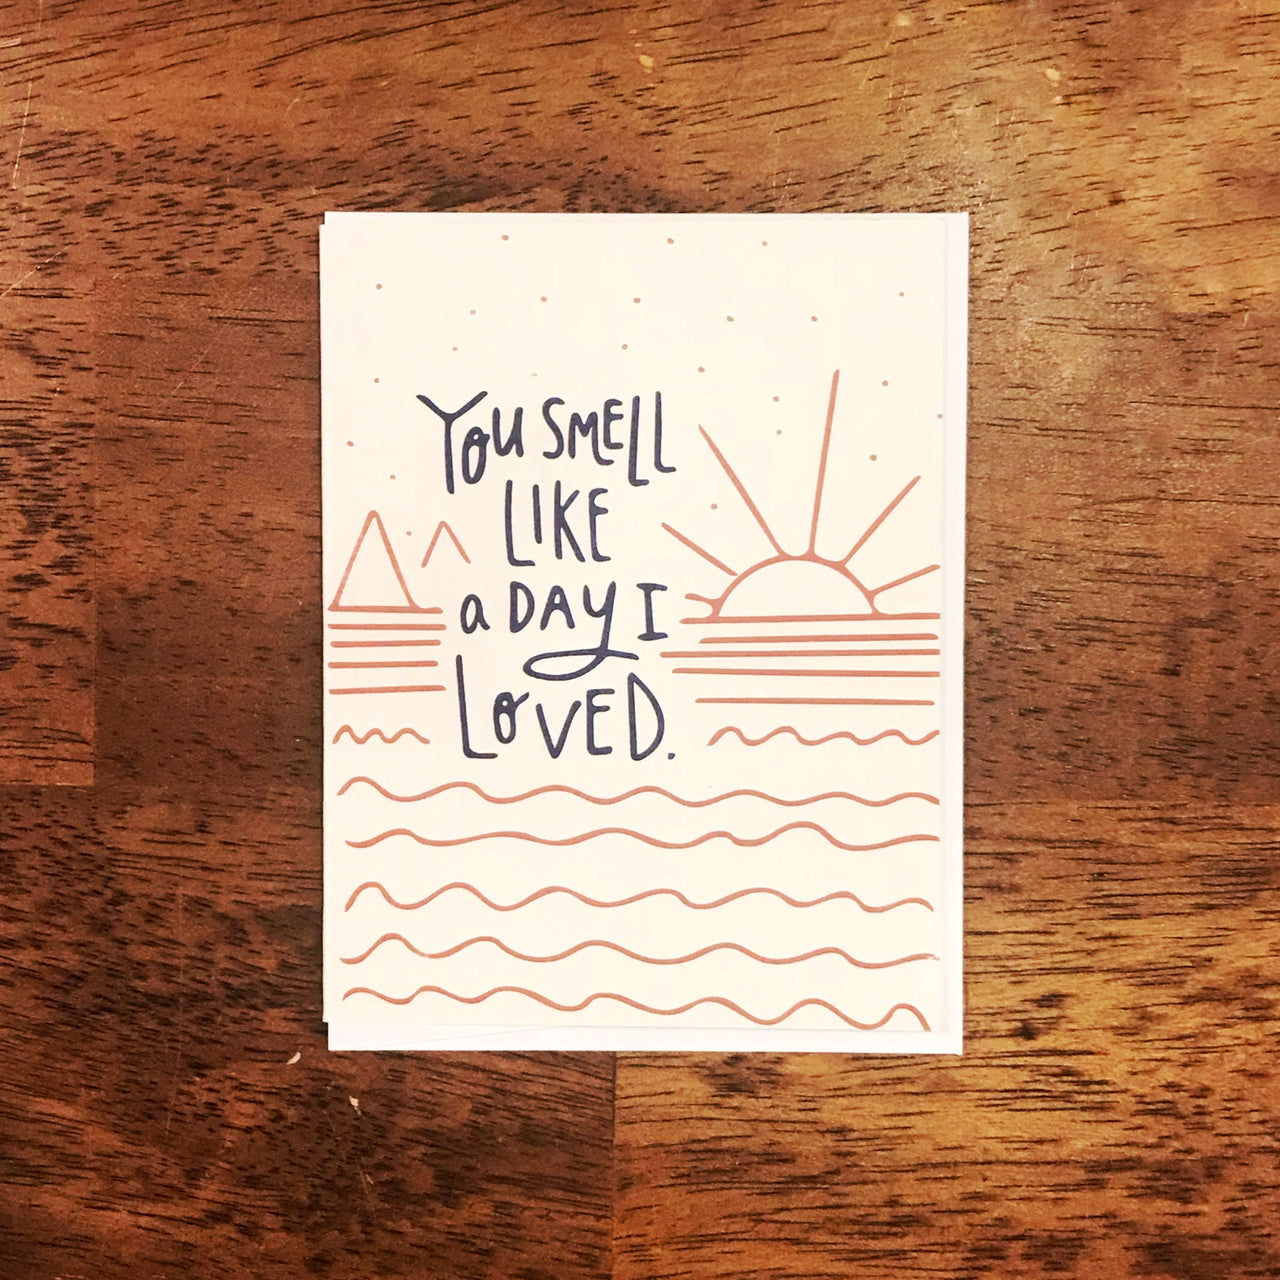 YoU SMELL
LIKE
a DAY I
LoVED.